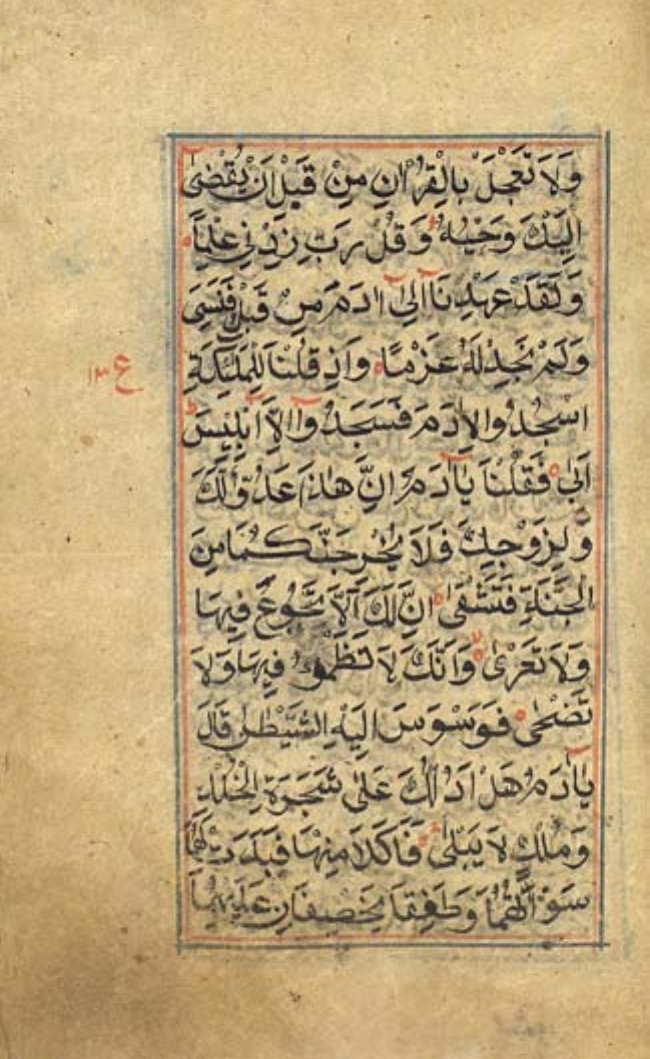 وَلَا تَعْجَلْ بِالْقُرْاٰنِ مِنْ قَبْلِ اَنْ يُقْضٰى
اِلَيْكَ وَحْيُهٗ وَقُلْ رَبِّ زِدْنِي عِلْمًا
وَلَقَدْ عَهِدْنَا اِلٰى اٰدَمَ مِنْ قَبْلُ فَنَسِيَ
وَلَمْ نَجِدْ لَهٗ عَزْمًا وَاِذْ قُلْنَا لِلْمَلٰئِكَةِ
اسْجُدُوا لِاٰدَمَ فَسَجَدُوا اِلَّا اِبْلِيْسَ
اَبٰى فَقُلْنَا يَاٰدَمُ اِنَّ هٰذَا عَدُوٌّ لَّكَ
وَلِزَوْجِكَ فَلَا يُخْرِجَنَّكُمَا مِنَ
الْجَنَّةِ فَتَشْقٰى اِنَّ لَكَ اَلَّا تَجُوْعَ فِيْهَا
وَلَا تَعْرٰى وَاَنَّكَ لَا تَظْمَؤُا فِيْهَا وَلَا
تَضْحٰى فَوَسْوَسَ اِلَيْهِ الشَّيْطٰنُ قَالَ
يَاٰدَمُ هَلْ اَدُلُّكَ عَلٰى شَجَرَةِ الْخُلْدِ
وَمُلْكٍ لَا يَبْلٰى فَاَكَلَا مِنْهَا فَبَدَتْ لَهُمَا
سَوْاٰتُهُمَا وَطَفِقَا يَخْصِفَانِ عَلَيْهِمَا